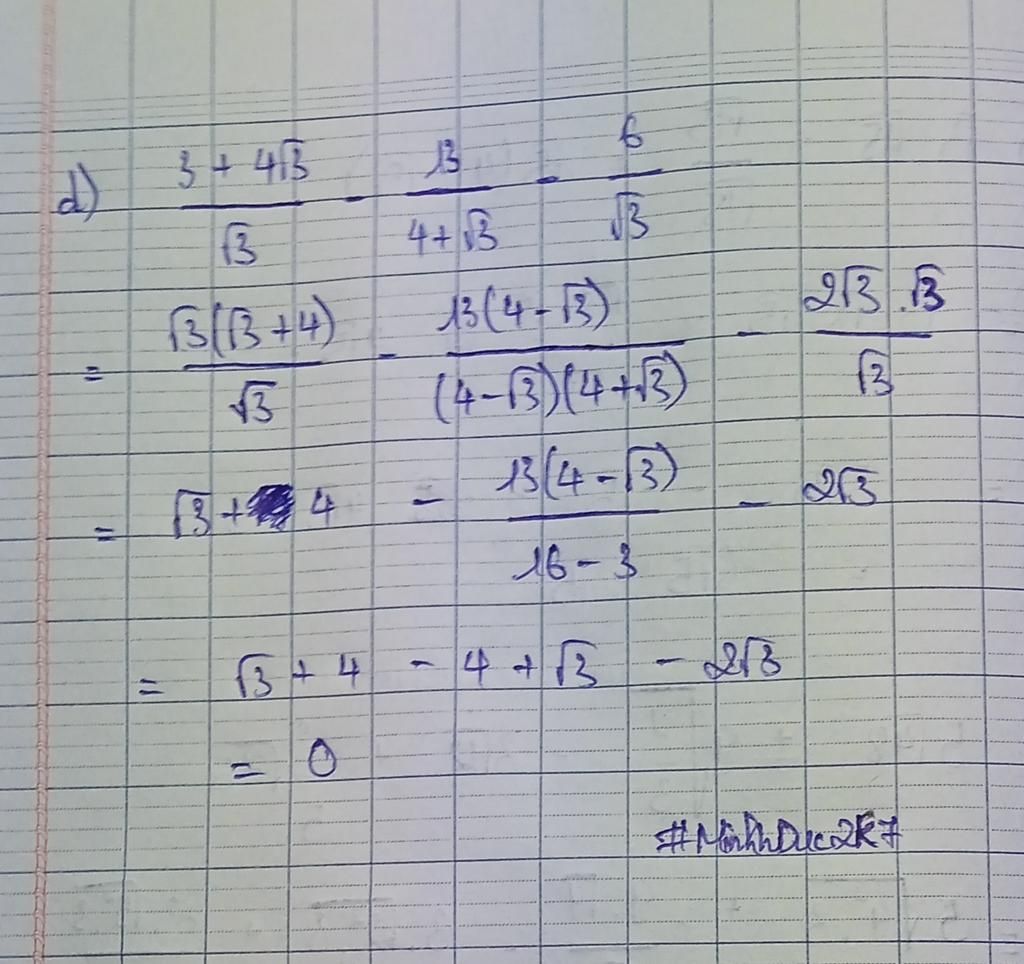 d) (3 + 4√3)/√3 - 13/(4 + √3) - 6/√3
= √3(√3 + 4)/√3 - 13(4 - √3)/((4 - √3)(4 + √3)) - 2√3 . √3/√3
= √3 + 4 - 13(4 - √3)/(16 - 3) - 2√3
= √3 + 4 - 4 + √3 - 2√3
= 0
#MinhDuc2k7